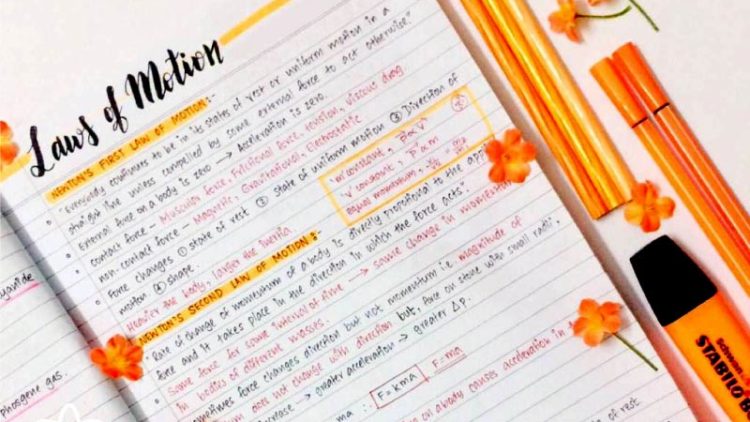 Laws of Motion
NEWTON'S FIRST LAW OF MOTION:-
• Everybody continues to be in its states of rest or uniform motion in a
straight line unless compelled by some external force to act otherwise."
• External force on a body is zero → Acceleration is zero.
• contact force - Muscular force, Frictional force, tension, viscous drag
non-contact force - Magnetic, Gravitational, Electrostatic
• Force changes ① state of rest ② state of uniform motion ③ Direction of
motion ④ shape.
'm' constant, P∝V
'V' constant, P∝m
Equal momentum,
• Heavier the body, larger the inertia.
NEWTON'S SECOND LAW OF MOTION:-
• "Rate of change of momentum of a body is directly proportional to the applied
force and it takes place in the direction in which the force acts".
• Same force for same interval of time → same change in momentum
in bodies of different masses.
Sometimes force changes direction but not momentum i.e. magnitude of
does not change with direction but, force on stone with small radii
increase → greater acceleration → greater Δp.
ma ∴ F=kma F=ma
on a body causes acceleration in
state of rest
cyanide
Phosgene gas.
Schwan
STABILO BO